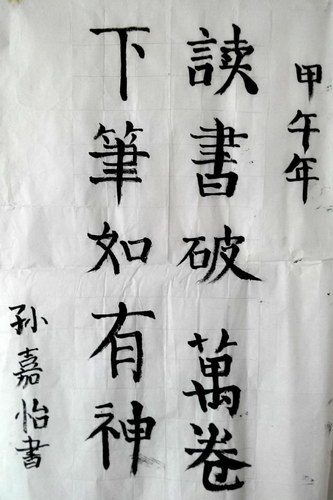 甲午年
読書破萬卷
下筆如有神
孙嘉怡書